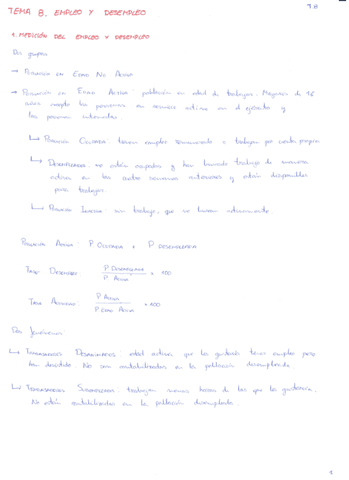 T8
TEMA 8. EMPLEO Y DESEMPLEO
1. MEDICIÓN DEL EMPLEO Y DESEMPLEO
Dos grupos
→ Población en Edad No Activa
→ Población en Edad Activa: población en edad de trabajar. Mayores de 16
años excepto las personas en servicio activo en el ejército y
las personas internadas.
↳ Población Ocupada: tienen empleo remunerado o trabajan por cuenta propia
↳ Desempleados: no están ocupados y han buscado trabajo de manera
activa en las cuatro semanas anteriores y están disponibles
para trabajar.
↳ Población Inactiva: sin trabajo, que no buscan activamente
Población Activa: P. Ocupada + P. Desempleada
Tasa Desempleo: P. Desempleada / P. Activa × 100
Tasa Actividad: P. Activa / P. Edad Activa × 100
Dos fenómenos
↳ Trabajadores Desanimados: edad activa que les gustaría tener empleo pero
han desistido. No son contabilizados en la población desempleada
↳ Trabajadores Subempleados: trabajan menos horas de las que les gustaría.
No están contabilizados en la población desempleada.